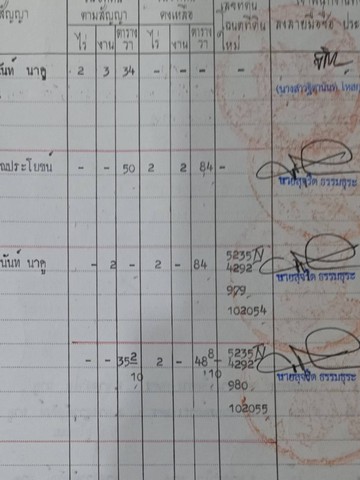 สัญญา ตามสัญญา คงเหลือ เลขที่ดิน
โฉนดที่ดิน
ใหม่
ไร่ งาน ตารางวา ไร่ งาน ตารางวา
นันท์ นาดู 2 3 34
(นางสาวฐิตานันท์
ณประโยชน์ - - 50 2 2 84 -
นายสุจริต ธรรมธุระ
นันท์ นาดู - 2 - 2 - 84 5235 IV
4292
979
102054
นายสุจริต ธรรมธุระ
- - 35 2/10 2 - 48 8/10 5235 IV
4292
980
102055
นายสุจริต ธรรมธุระ